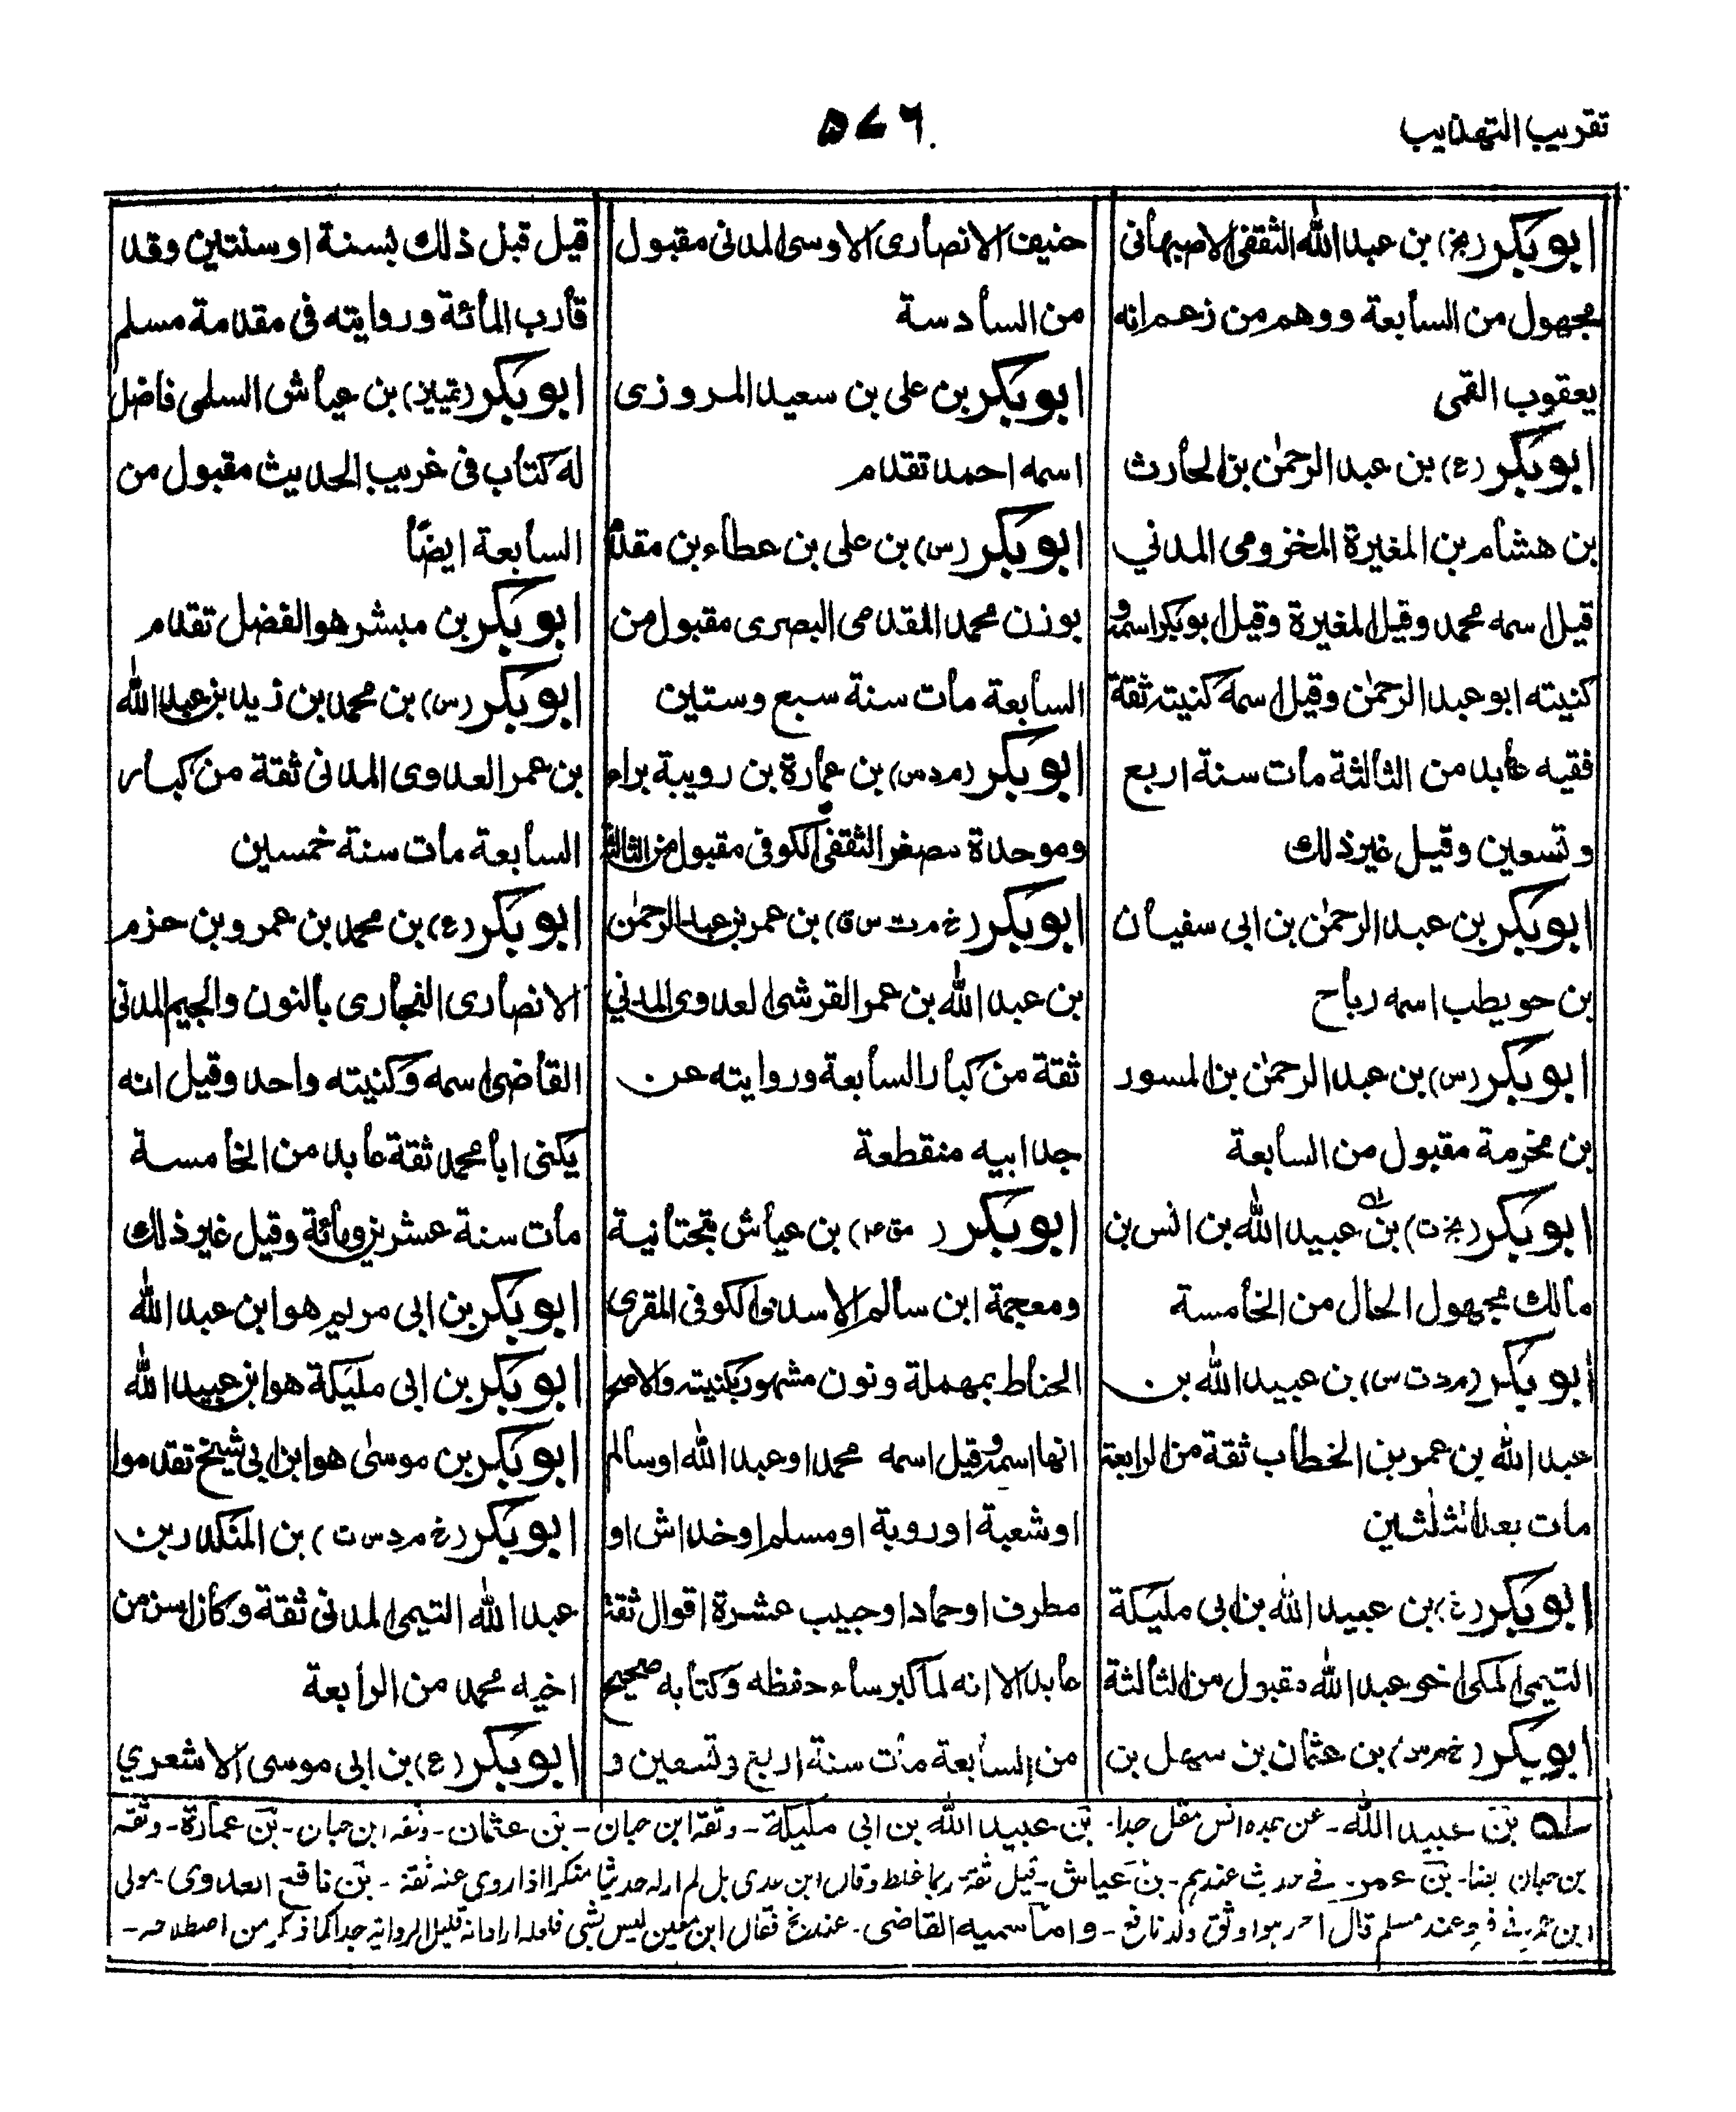 تقريب التهذيب
۵۷۶
ابو بكر (بخ) بن عبد الله الثقفى الاصبهانى
مجهول من السابعة ووهم من زعم انه
يعقوب القمى
ابو بكر (ع) بن عبد الرحمٰن بن الحارث
بن هشام بن المغيرة المخزومى المدني
قيل اسمه محمد وقيل المغيرة وقيل ابو بكر اسمه و
كنيته ابو عبد الرحمٰن وقيل اسمه كنيته ثقة
فقيه عابد من الثالثة مات سنة اربع
وتسعين وقيل غير ذلك
ابو بكر بن عبد الرحمٰن بن ابى سفيان
بن حويطب اسمه رباح
ابو بكر (س) بن عبد الرحمٰن بن المسور
بن مخرمة مقبول من السابعة
ابو بكر (بخ ت) بن عبيد الله بن انس بن
مالك مجهول الحال من الخامسة
ابو بكر (م د ت س) بن عبيد الله بن
عبد الله بن عمر بن الخطاب ثقة من الرابعة
مات بعد الثلثين
ابو بكر (خ) بن عبيد الله بن ابى مليكة
التيمى المكى اخو عبد الله مقبول من الثالثة
ابو بكر (خ م س) بن عثمان بن سهل بن
حنيف الانصارى الاوسى المدنى مقبول
من السادسة
ابو بكر بن على بن سعيد المروزى
اسمه احمد تقدم
ابو بكر (س) بن على بن عطاء بن مقدم
بوزن محمد المقدمى البصرى مقبول من
السابعة مات سنة سبع وستين
ابو بكر (م د س) بن عمارة بن رويبة براء
وموحدة مصغر الثقفى الكوفى مقبول من الثالثة
ابو بكر (خ م ت س ق) بن عمر بن عبد الرحمٰن
بن عبد الله بن عمر القرشى العدوى المدني
ثقة من كبار السابعة وروايته عن
جد ابيه منقطعة
ابو بكر (مق ۴) بن عياش بتحتانية
ومعجمة ابن سالم الاسدى الكوفى المقرى
الحناط بمهملة ونون مشهور بكنيته والاصح
انها اسمه وقيل اسمه محمد او عبد الله او سالم
او شعبة او روبة او مسلم او خداش او
مطرف او حماد او حبيب عشرة اقوال ثقة
عابد الا انه لما كبر ساء حفظه وكتابه صحيح
من السابعة مات سنة اربع وتسعين و
قيل قبل ذلك بسنة او سنتين وقد
قارب المائة وروايته فى مقدمة مسلم
ابو بكر (تمييز) بن عياش السلمى فاضل
له كتاب فى غريب الحديث مقبول من
السابعة ايضًا
ابو بكر بن مبشر هو الفضل تقدم
ابو بكر (س) بن محمد بن زيد بن عبد الله
بن عمر العدوى المدنى ثقة من كبار
السابعة مات سنة خمسين
ابو بكر (ع) بن محمد بن عمرو بن حزم
الانصارى النجارى بالنون والجيم المدنى
القاضى اسمه وكنيته واحد وقيل انه
يكنى ابا محمد ثقة عابد من الخامسة
مات سنة عشرين ومائة وقيل غير ذلك
ابو بكر بن ابى مريم هو ابن عبد الله
ابو بكر بن ابى مليكة هو ابن عبيد الله
ابو بكر بن موسىٰ هو ابن ابي شيخ تقدموا
ابو بكر (خ م د س ت) بن المنكدر بن
عبد الله التيمى المدنى ثقة وكان اسن من
اخيه محمد من الرابعة
ابو بكر (ع) بن ابى موسى الاشعري
له بن عبيد الله۔ عن جده انس مقل جدا۔ بن عبيد الله بن ابى مليكة۔ وثقه ابن حبان۔ بن عثمان۔ وثقه ابن حبان۔ بن عمارة۔ وثقه
بن حبان ايضا۔ بن عمر۔ فى حديث عندهم۔ بن عياش۔ قيل ثقة۔ ربما غلط وقال ابن عدى بل لم ار له حديثا منكرا اذا روى عنه ثقة۔ بن نافع العدوى۔ مولى
ابن عمر۔ فى عند مسلم قال احمد هو اوثق ولد نافع۔ واما سميه القاضى۔ عند فقال ابن معين ليس بشى فلعله اراد انه قليل الرواية جدا كما ذكر من اصطلاحه۔